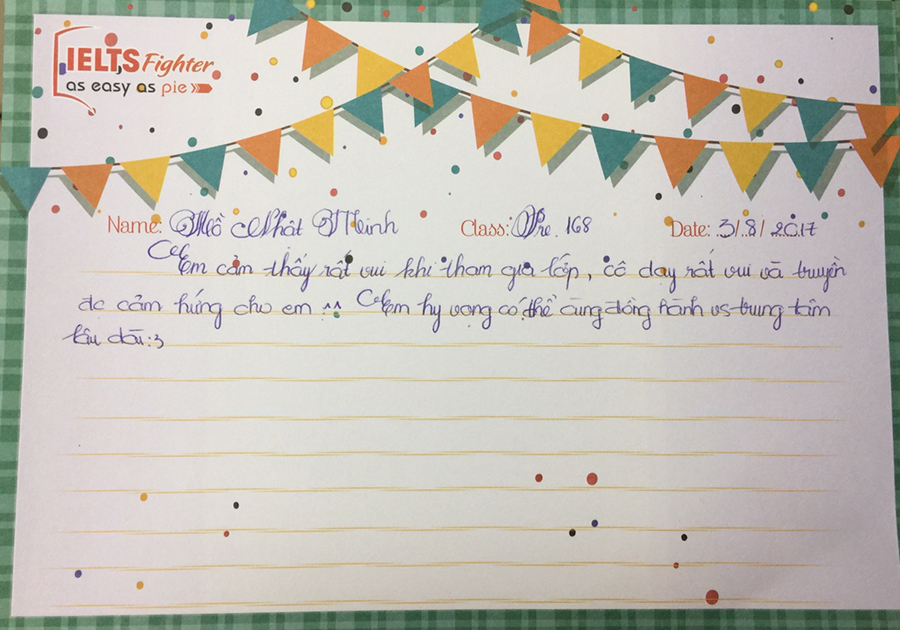 IELTS Fighter
as easy as pie
Name: Hồ Nhật Minh Class: Pre 168 Date: 3/8/2017
Em cảm thấy rất vui khi tham gia lớp, cô dạy rất vui và truyền
đc cảm hứng cho em ^^ Em hy vọng có thể cùng đồng hành vs trung tâm
lâu dài :3